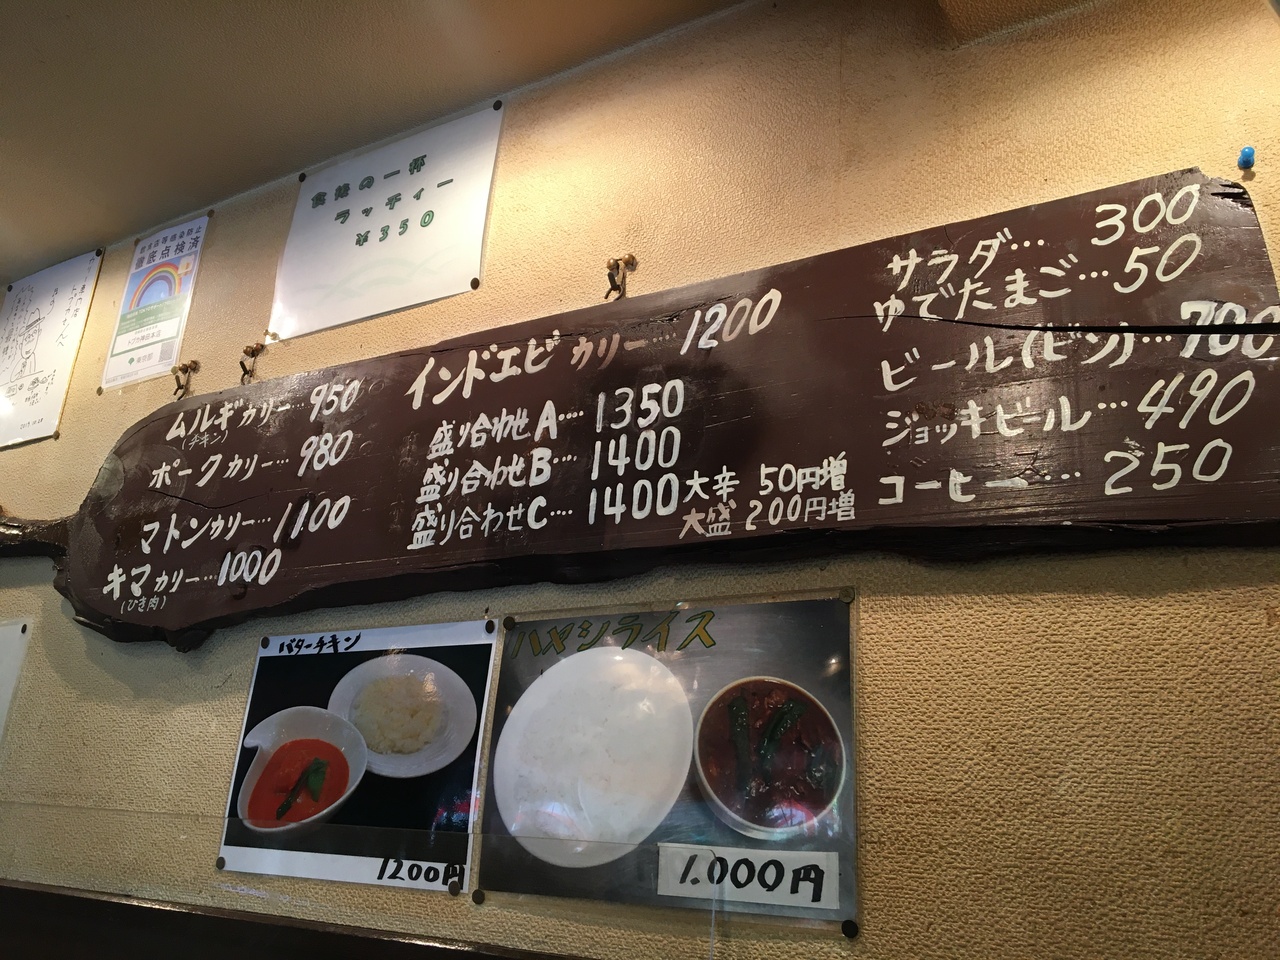 食後の一杯
ラッチィー
¥350
感染防止
徹底点検済
東京都
ムルギカリー…950
(チキン)
ポークカリー…980
マトンカリー…1100
キマカリー…1000
(ひき肉)
インドエビカリー…1200
盛り合わせA…1350
盛り合わせB…1400
盛り合わせC…1400
大辛 50円増
大盛 200円増
サラダ…300
ゆでたまご…50
ビール(ビン)…700
ジョッキビール…490
コーヒー…250
バターチキン
1200円
ハヤシライス
1.000円